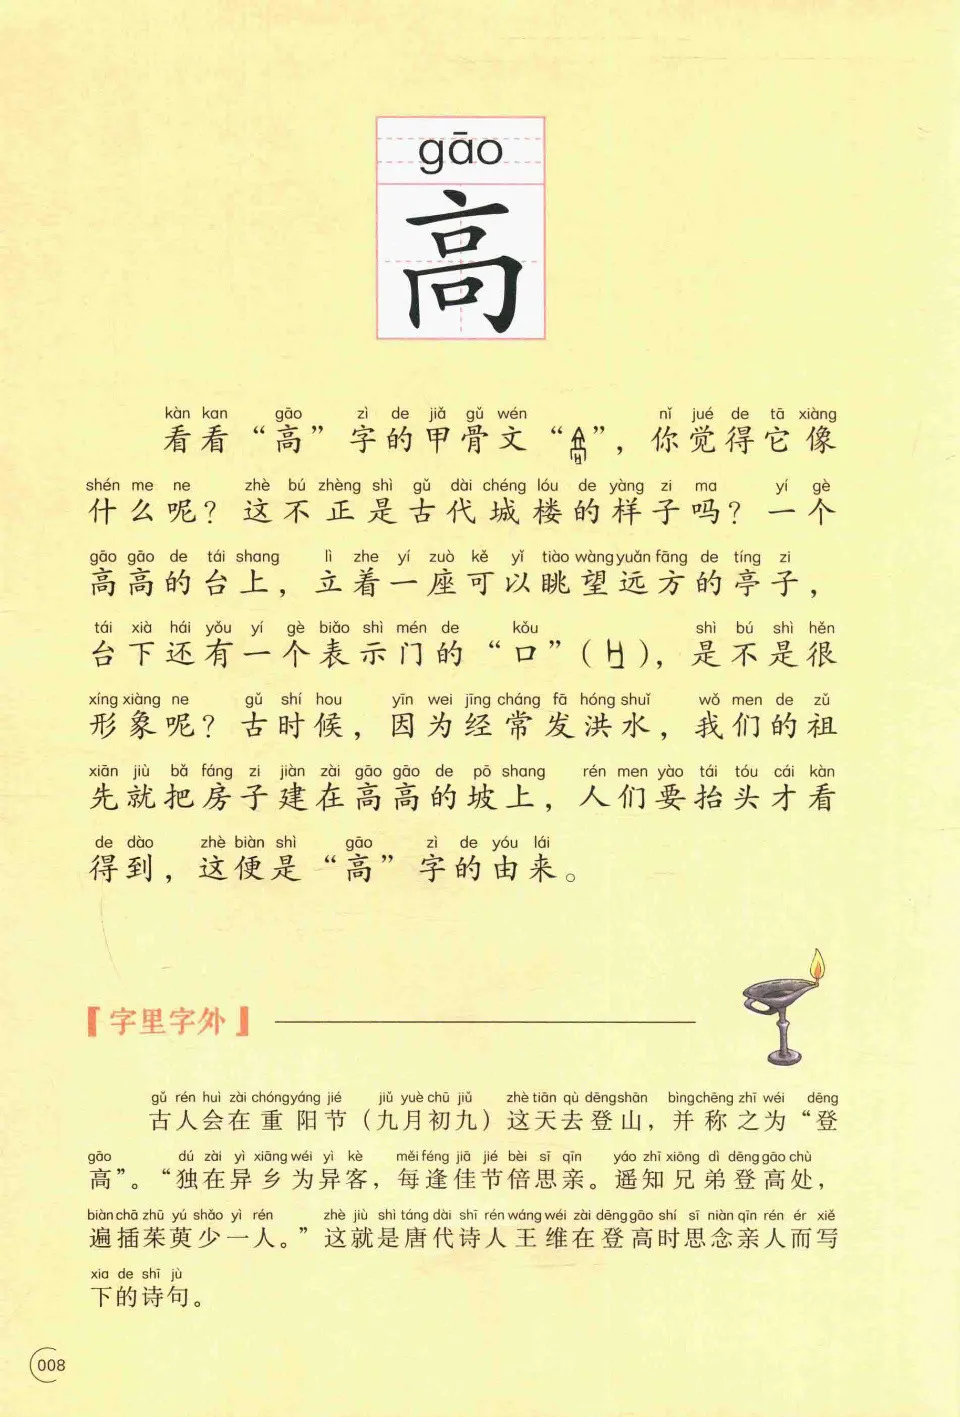 gāo
高
kàn kan gāo zì de jiǎ gǔ wén nǐ jué de tā xiàng
看看“高”字的甲骨文“”，你觉得它像
shén me ne zhè bú zhèng shì gǔ dài chéng lóu de yàng zi ma yí gè
什么呢？这不正是古代城楼的样子吗？一个
gāo gāo de tái shang lì zhe yí zuò kě yǐ tiào wàng yuǎn fāng de tíng zi
高高的台上，立着一座可以眺望远方的亭子，
tái xià hái yǒu yí gè biǎo shì mén de kǒu shì bú shì hěn
台下还有一个表示门的“口”（），是不是很
xíng xiàng ne gǔ shí hou yīn wei jīng cháng fā hóng shuǐ wǒ men de zǔ
形象呢？古时候，因为经常发洪水，我们的祖
xiān jiù bǎ fáng zi jiàn zài gāo gāo de pō shang rén men yào tái tóu cái kàn
先就把房子建在高高的坡上，人们要抬头才看
de dào zhè biàn shì gāo zì de yóu lái
得到，这便是“高”字的由来。
【字里字外】
gǔ rén huì zài chóng yáng jié jiǔ yuè chū jiǔ zhè tiān qù dēng shān bìng chēng zhī wéi dēng
古人会在重阳节（九月初九）这天去登山，并称之为“登
gāo dú zài yì xiāng wéi yì kè měi féng jiā jié bèi sī qīn yáo zhī xiōng dì dēng gāo chù
高”。“独在异乡为异客，每逢佳节倍思亲。遥知兄弟登高处，
biàn chā zhū yú shǎo yì rén zhè jiù shì táng dài shī rén wáng wéi zài dēng gāo shí sī niàn qīn rén ér xiě
遍插茱萸少一人。”这就是唐代诗人王维在登高时思念亲人而写
xia de shī jù
下的诗句。
008